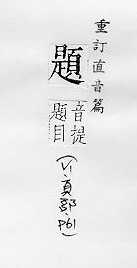 重訂直音篇
題
音提
題目
(V.1,頁部,P61)